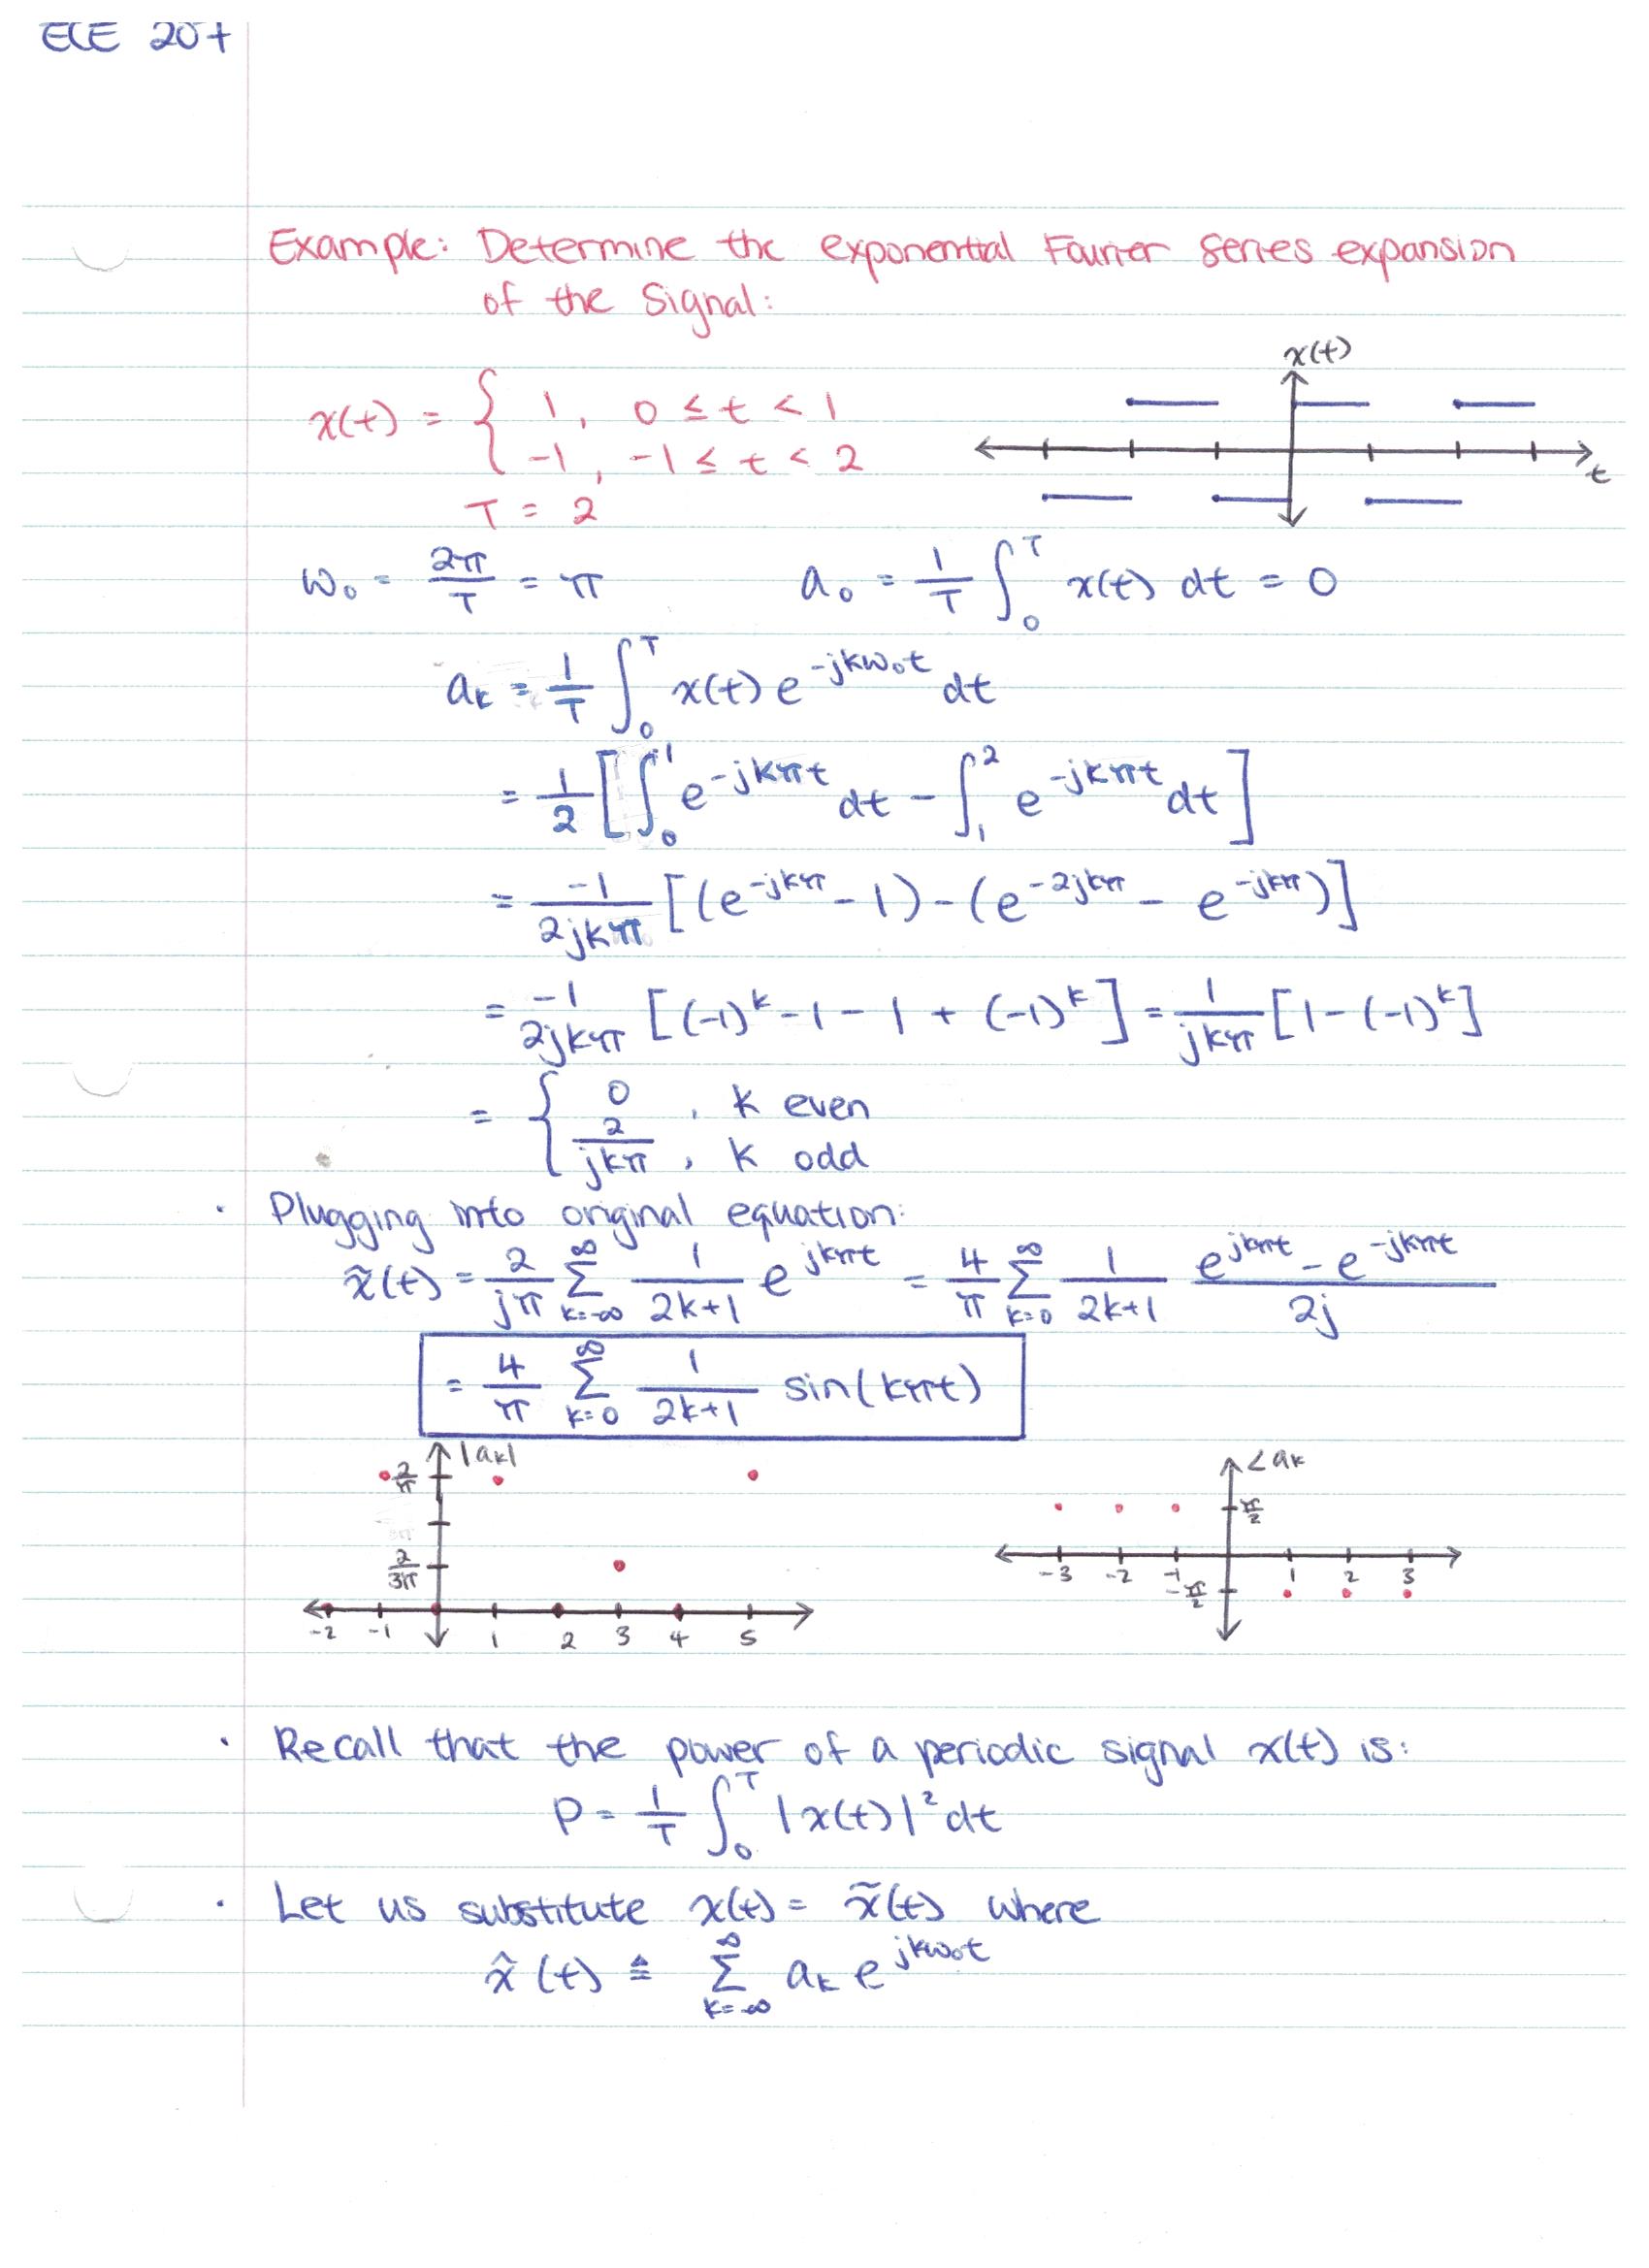 ECE 207
Example: Determine the exponential Fourier series expansion
of the signal:
x(t)
x(t) = { 1, 0 ≤ t < 1
-1, -1 ≤ t < 2
t
T = 2
ω₀ = 2π/T = π    a₀ = 1/T ∫₀ᵀ x(t) dt = 0
aₖ = 1/T ∫₀ᵀ x(t) e^(-jkω₀t) dt
= 1/2 [∫₀¹ e^(-jkπt) dt - ∫₁² e^(-jkπt) dt]
= -1/(2jkπ) [(e^(-jkπ) - 1) - (e^(-2jkπ) - e^(-jkπ))]
= -1/(2jkπ) [(-1)^k - 1 - 1 + (-1)^k] = 1/(jkπ) [1 - (-1)^k]
= { 0, k even
2/(jkπ), k odd
· Plugging into original equation:
x̃(t) = 2/(jπ) Σ_{k=-∞}^{∞} 1/(2k+1) e^(jkπt) = 4/π Σ_{k=0}^{∞} 1/(2k+1) (e^(jkπt) - e^(-jkπt))/(2j)
= 4/π Σ_{k=0}^{∞} 1/(2k+1) sin(kπt)
|aₖ|
2/π
2/3π
-2 -1 1 2 3 4 5
∠aₖ
π/2
-3 -2 -1 1 2 3
-π/2
· Recall that the power of a periodic signal x(t) is:
P = 1/T ∫₀ᵀ |x(t)|² dt
· Let us substitute x(t) = x̃(t) where
x̂(t) ≙ Σ_{k=-∞}^{∞} aₖ e^(jkω₀t)